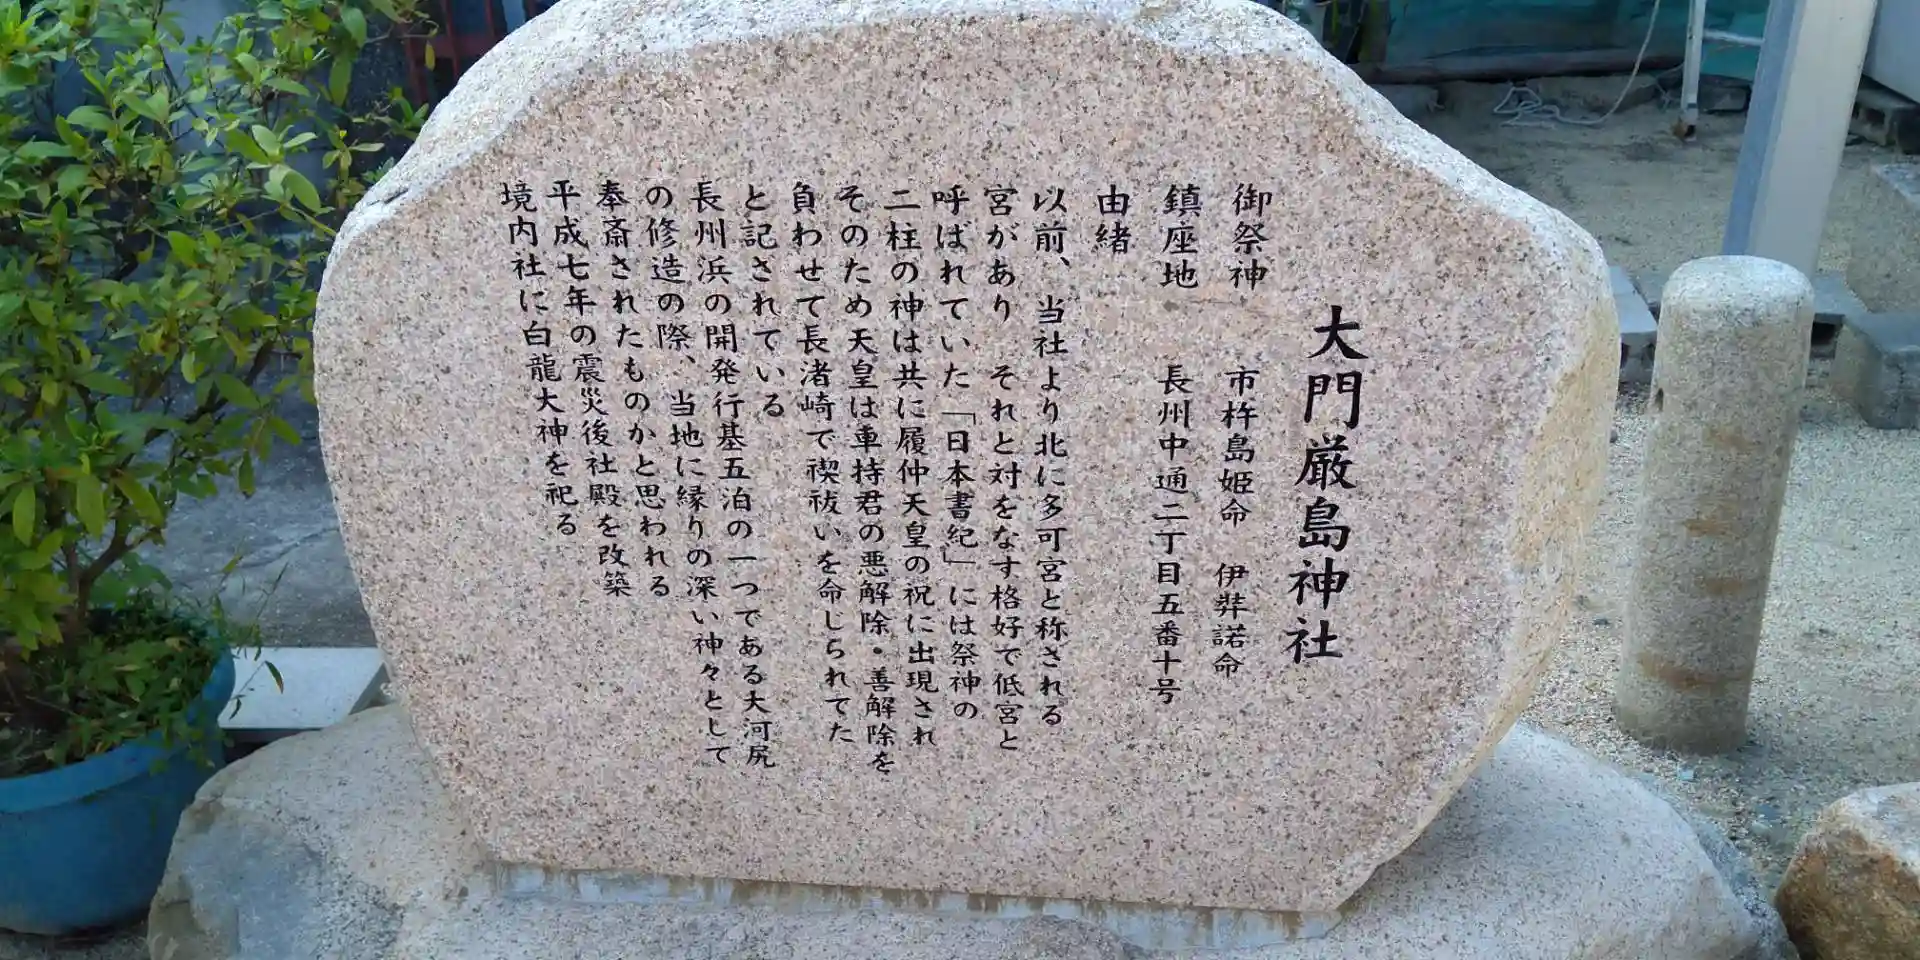 大門厳島神社
御祭神　市杵島姫命　伊弉諾命
鎮座地　長州中通二丁目五番十号
由緒
以前、当社より北に多可宮と称される
宮があり　それと対をなす格好で低宮と
呼ばれていた「日本書紀」には祭神の
二柱の神は共に履仲天皇の祝に出現され
そのため天皇は車持君の悪解除・善解除を
負わせて長渚崎で禊祓いを命じられてた
と記されている
長州浜の開発行基五泊の一つである大河尻
の修造の際、当地に縁りの深い神々として
奉斎されたものかと思われる
平成七年の震災後社殿を改築
境内社に白龍大神を祀る